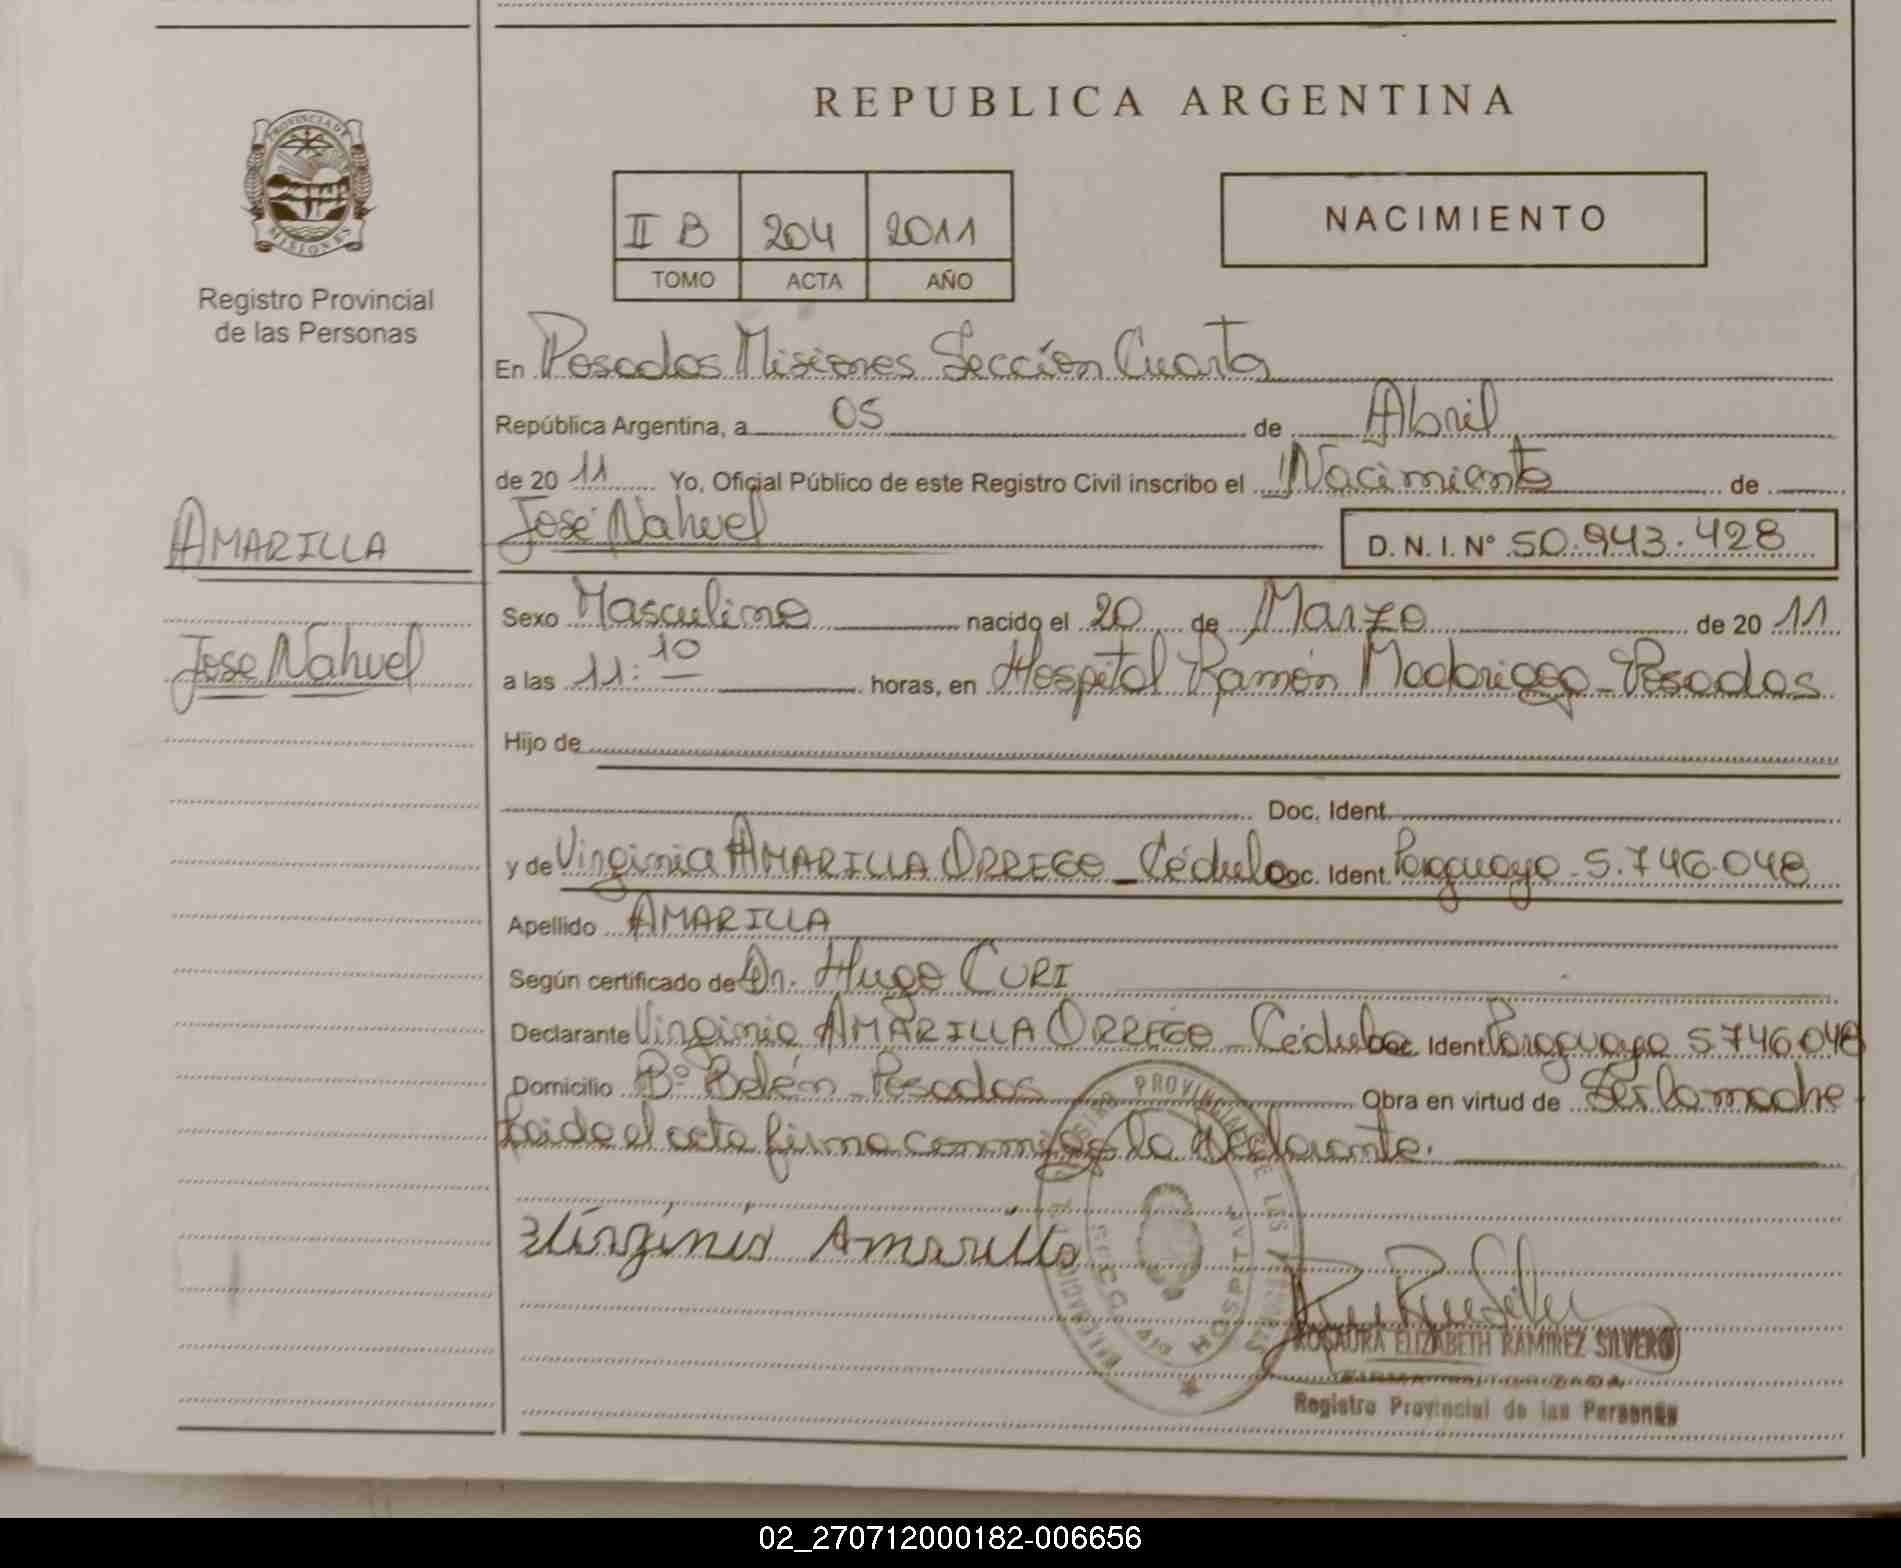 REPUBLICA ARGENTINA
PROVINCIA DE
MISIONES
Registro Provincial
de las Personas
II B 204 2011
TOMO ACTA AÑO
NACIMIENTO
En Posadas Misiones Sección Cuarta
República Argentina, a 05 de Abril
de 20 11 Yo, Oficial Público de este Registro Civil inscribo el Nacimiento de
José Nahuel D. N. I. Nº 50.943.428
AMARILLA
Jose Nahuel
Sexo Masculino nacido el 20 de Marzo de 20 11
a las 11:10 horas, en Hospital Ramón Madariaga - Posadas
Hijo de
Doc. Ident.
y de Virginia AMARILLA ORREGO - Cédula Doc. Ident. Paraguaya 5.746.048
Apellido AMARILLA
Según certificado de Dr. Hugo CURI
Declarante Virginia AMARILLA ORREGO - Cédula Doc. Ident. Paraguaya 5746.048
Domicilio Bº Belén - Posadas Obra en virtud de Ser la madre
Leida el acta firma conmigo la declarante.
Virginia Amarilla
ROSAURA ELIZABETH RAMIREZ SILVERO
Registro Provincial de las Personas
02_270712000182-006656